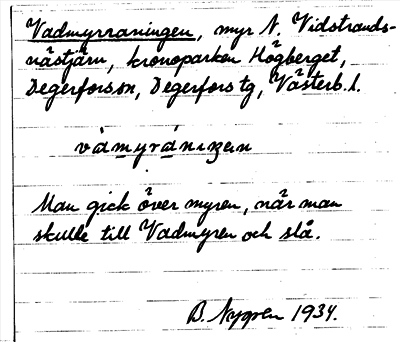 Vadmyrraningen, myr N. Vidstrands-
nästjärn, kronoparken Högberget,
Degerforssn, Degerfors tg, Västerb. l.
vàmyrániŋen
Man gick över myren, när man
skulle till Vadmyren och slå.
B. Nygren 1934.